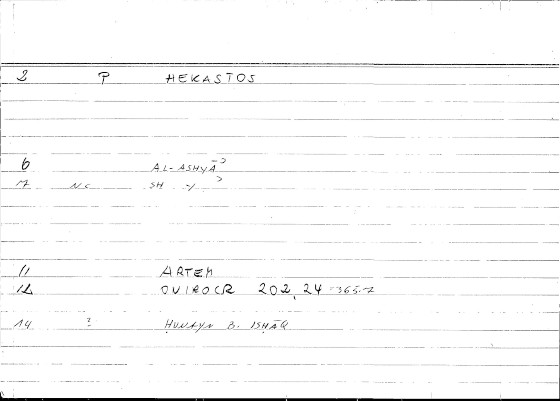 2 P HEKASTOS
6 AL-ASHYĀʾ
17 NC SH -Y- ʾ
11 ARTEM
12 OVIROCR 202, 24-365.7
14 ? ḤUNAYN B. ISHĀQ